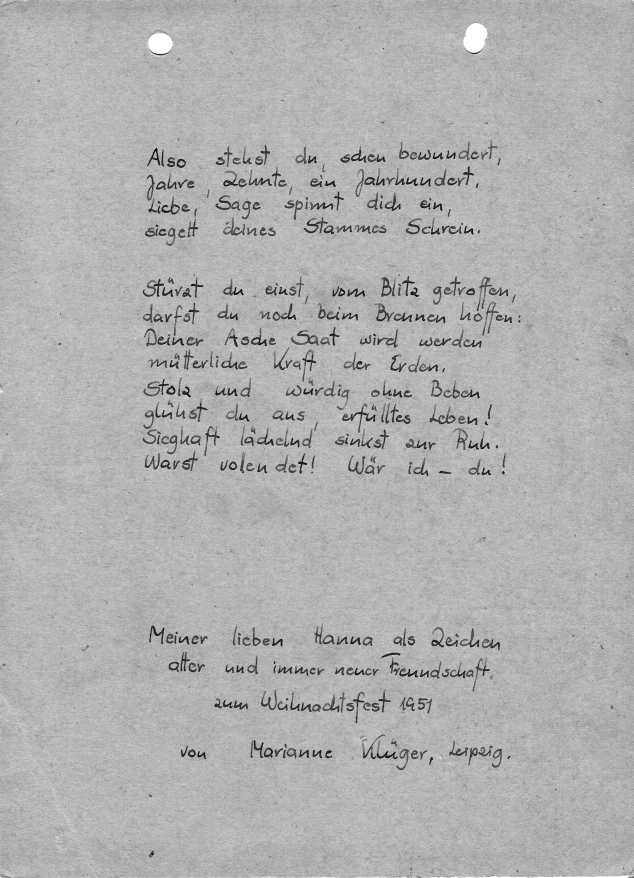 Also stehst du, scheu bewundert,
Jahre, Zehnte, ein Jahrhundert.
Liebe, Sage spinnt dich ein,
siegelt deines Stammes Schrein.
Stürzt du einst, vom Blitz getroffen,
darfst du noch beim Brennen hoffen:
Deiner Asche Saat wird werden
mütterliche Kraft der Erden.
Stolz und würdig ohne Beben
glühst du aus, erfülltes Leben!
Sieghaft lächelnd sinkst zur Ruh.
Warst volendet! Wär ich – du!
Meiner lieben Hanna als Zeichen
alter und immer neuer Freundschaft.
zum Weihnachtsfest 1951
von Marianne Klüger, Leipzig.